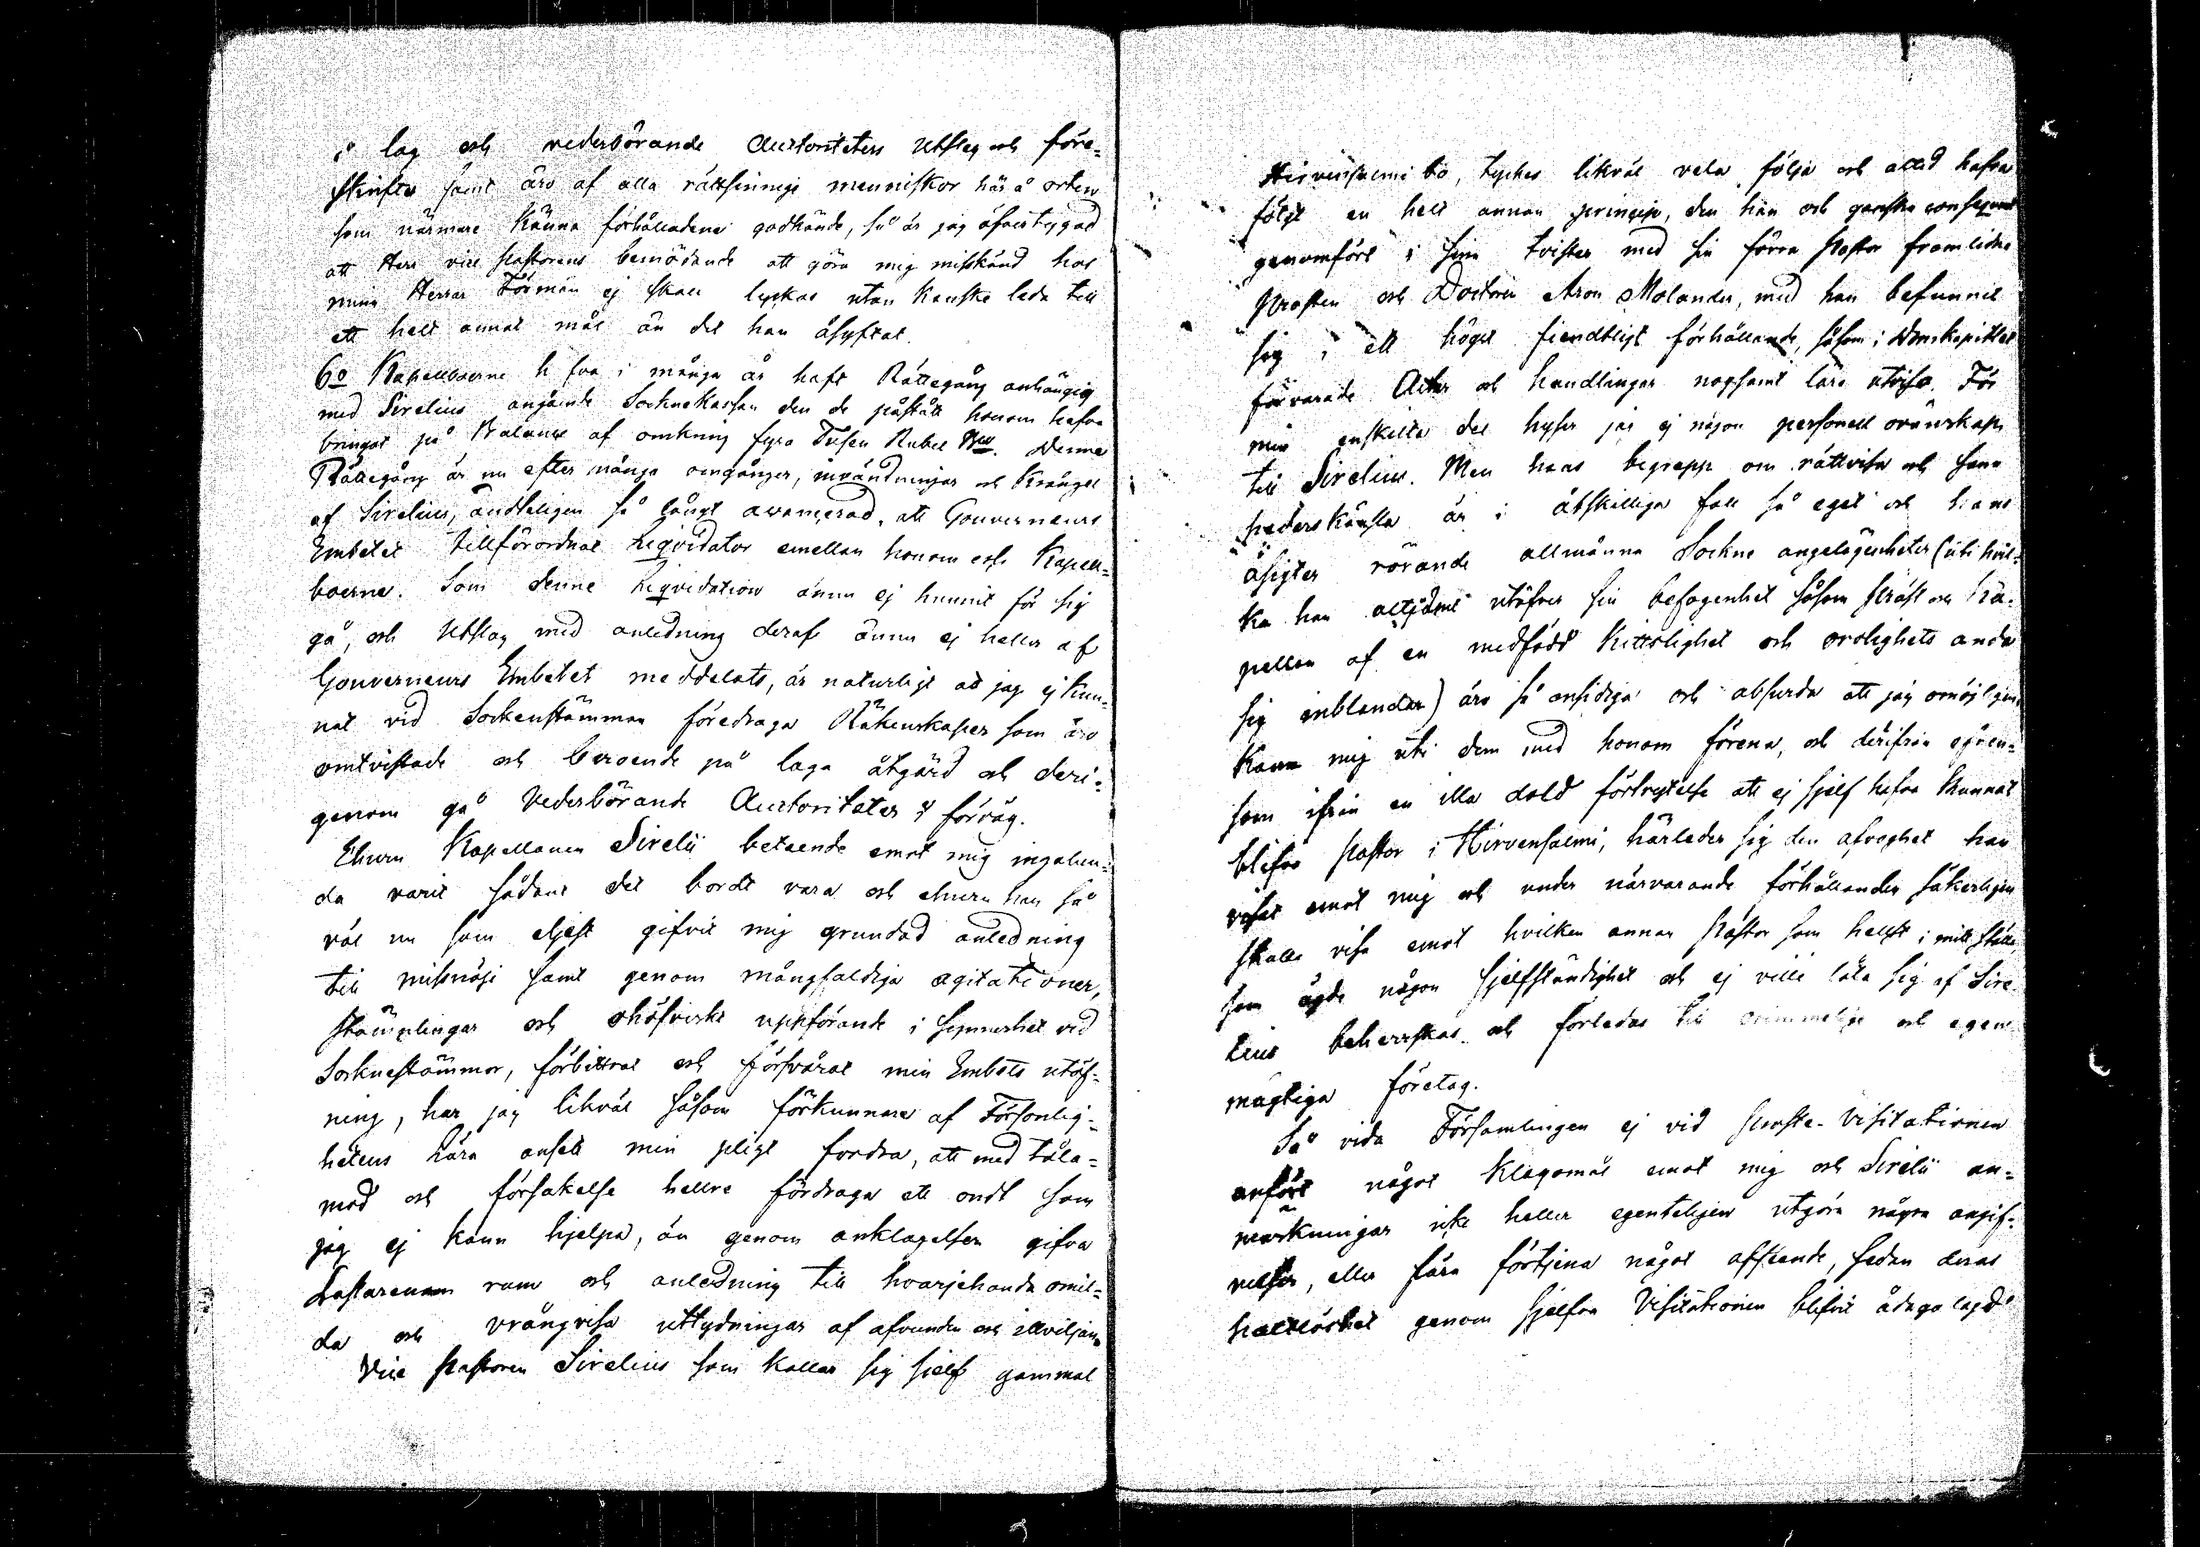 i lag och vederbörande Auctoriteters Utslag och före=
skrifter samt äro af alla rättsinniga menniskor här å orten
som närmare känna förhålladena godkände, så är jag öfvertygad
att Herr vice Pastorens bemödande att göra mig misskänd hos
mina Herrar Förmän ej skall lyckas utan kanske leda till
ett helt annat mål än det han åsyftat.
6o Kapellboerne hafva i många år haft Rättegång anhängig
med Sirelius angående Socknekassan den de påstått honom hafva
bringat på Balance af omkring fyra Tusen Rubel. Denna
Rättegång är nu efter många omgånger, invändningar och krångel
af Sirelius, ändteligen så långt avancerad, att Gouverneurs
Embetet tillförordnat Liqvidator emellan honom och Kapell=
boerne. Som denne Liqvidation ännu ej hunnit för sig
gå, och Utslag med anledning deraf ännu ej heller af
Gouverneurs Embetet meddelats, är naturligt att jag ej kun=
nat vid Sockenstämman föredraga Räkenskaper som äro
omtvistade och beroende på laga åtgärd och deri=
genom gå Vederbörande Auctoriteter i förväg.
Ehuru Kapellanen Sirelii beteende emot mig ingalun=
da varit sådant det bordt vara och ehuru han så
väl nu som eljest gifvit mig grundad anledning
till missnöje samt genom mångfaldiga agitationer,
stämplingar och ohöfviskt uppförande i synnerhet vid
Socknestämmor, förbittrat och försvårat min Embets utöf=
ning, har jag likväl såsom förkunnare af Försonlig=
hetens Lära ansett min pligt fordra, att med tåla=
mod och försakelse hellre fördraga ett ondt som
jag ej kann hjelpa, än genom anklagelser gifva
Lastarenom rum och anledning till hvarjehanda omil=
da och vrångvisa uttydningar af afvunden och illviljan.
Vice Pastoren Sirelius som kallar sig sjelf gammal
Hirvensalmi bo, tyckes likväl vela följa och alltid hafva
följt en helt annan princip, den han och ganska consequent
genomfört i sina tvister med sin förra Pastor framlidne
Prosten och Doctorn Aron Molander, med han befunnit
sig i ett högst fiendtligt förhållande, såsom i Domkapitlet
förvarade Acter och handlingar nogsamt lära utvisa. För
min enskilta del hyser jag ej någon personell ovänskap
till Sirelius. Men hans begrepp om rättvisa och sann
hederskänsla är i åtskilliga fall så eget och hans
åsigter rörande allmänna Sockne angelägenheter (uti hvil=
ka han alltjämt utöfver sin befogenhet såsom Präst och Ka=
pellan af en medfödd kittslighet och orolighets anda
sig inblandar) äro så ensidiga och absurda att jag omöjligen
kann mig uti dem med honom förena, och derifrån egen=
som ifrån en illa dold förtrytelse att ej sjelf hafva kunnat
blifva Pastor i Hirvensalmi, härleder sig den afvoghet han
visat emot mig och under närvarande förhållanden säkerligen
skulle visa emot hvilken annan Pastor som helst i mitt ställe
som ägde någon sjelfständighet och ej ville låta sig af Sire=
lius beherrskas och förledas till och egen
mägtiga företag.
Så vida Församlingen ej vid Prosts-Visitationen
anfört något klagomål emot mig och Sirelii an=
märkningar icke heller egenteligen utgöra några angif=
velser, eller lära förtjena något afseende, sedan deras
haltlöshet genom sjelfva Visitationen blifvit ådagalagd